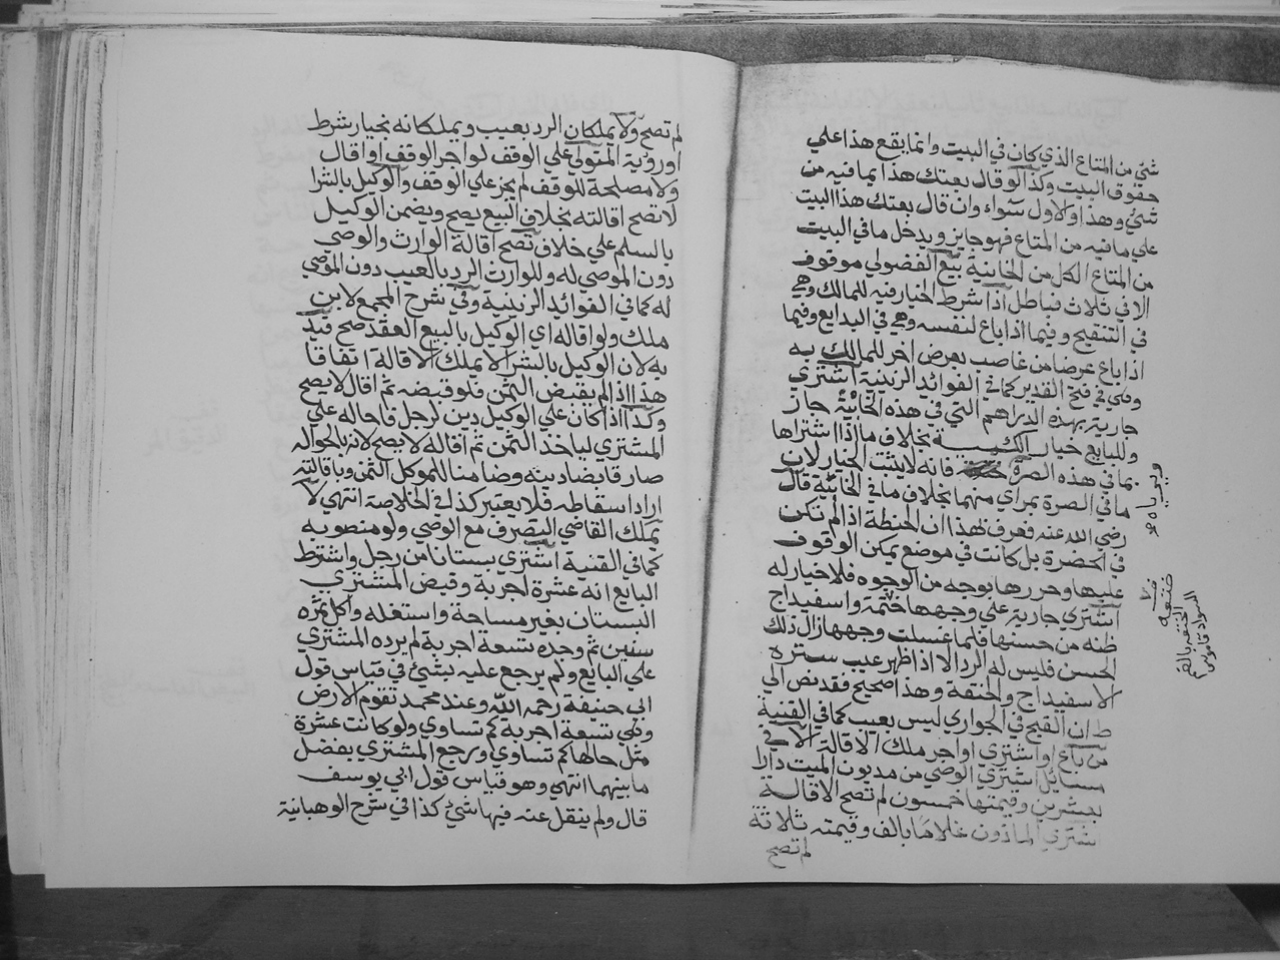 شيئ من المتاع الذي كان في البيت وانما يقع هذا علي
حقوق البيت وكذا لو قال بعتك هذا بما فيه من
شيئ وهذا والاول سواء وان قال بعتك هذا البيت
علي ما فيه من المتاع فهو جايز ويدخل ما في البيت
من المتاع الكل من الخانية بيع الفضولي موقوف
الا في ثلاث فباطل اذا شرط الخيار فيه للمالك وهي
في التنقيح وفيما اذا باع لنفسه وهي في البدايع وفيما
اذا باع عرضا من غاصب بعرض اخر للمالك به
وهي في فتح القدير كما في الفوائد الزينية اشتري
جارية بهذه الدراهم التي في هذه الخابية جاز
وللبايع خيار الكمية بخلاف ما اذا اشتراها
بما في هذه الصرة فانه لا يثبت الخيار لان
ما في الصرة بمراي منهما بخلاف ما في الخابية قال
رضي الله عنه فعرف بهذا ان الحنطة اذا لم تكن
في الحضرة بل كانت في موضع يمكن الوقوف
عليها وحررها بوجه من الوجوه فلا خيار له
اشتري جارية علي وجهها ختمة واسفيداج
ظنه من حسنها فلما غسلت وجهها زال ذلك
الحسن فليس له الرد الا اذا ظهر عيب ستره
الاسفيداج والخنقة وهذا صحيح فقد نص الي
ط ان القبح في الجواري ليس بعيب كما في القنية
من باع او اشتري او اجر ملك الاقالة الا في
مسائل اشتري الوصي من مديون الميت دارا
بعشرين وقيمتها خمسون لم تصح الاقالة
اشتري الماذون غلاما بالف وقيمته ثلاثة
لم تصح
السواد قاموس
لم تصح ولا يملكان الرد بعيب ويملكانه بخيار شرط
او رؤية المتولي علي الوقف لو اجر الوقف او اقال
ولا مصلحة للوقف لم يجز علي الوقف والوكيل بالشرا
لا تصح اقالته بخلاف البيع يصح ويضمن الوكيل
بالسلم علي خلاف تصح اقالة الوارث والوصي
دون الموصي له وللوارث الرد بالعيب دون الموصي
له كما في الفوائد الزينية وفي شرح المجمع لابن
ملك ولو اقاله اي الوكيل بالبيع العقد صح قيد
به لان الوكيل بالشرا لا يملك الاقالة اتفاقا
هذا اذا لم يقبض الثمن فلو قبضه ثم اقال لا يصح
وكذا اذا كان علي الوكيل دين لرجل فاحاله علي
المشتري لياخذ الثمن ثم اقاله لا يصح لانه بالحوالة
صار قابضا دينه وضامنا للموكل الثمن وباقالته
اراد اسقاطه فلا يعتبر كذا في الخلاصة انتهي لا
يملك القاضي التصرف مع الوصي ولو منصوبه
كما في القنية اشتري بستانا من رجل واشترط
البايع انه عشرة اجربة وقبض المشتري
البستان بغير مساحة واستغله واكل ثمره
سنين ثم وجده تسعة اجربة لم يرده المشتري
علي البايع ولم يرجع عليه بشئ في قياس قول
ابي حنيفة رحمه الله وعند محمد تقوم الارض
وهي تسعة اجربة كم تساوي ولو كانت عشرة
مثل حالها كم تساوي ورجع المشتري بفضل
ما بينهما انتهي وهو قياس قول ابي يوسف
قال ولم ينقل عنه فيها شيئ كذا في شرح الوهبانية